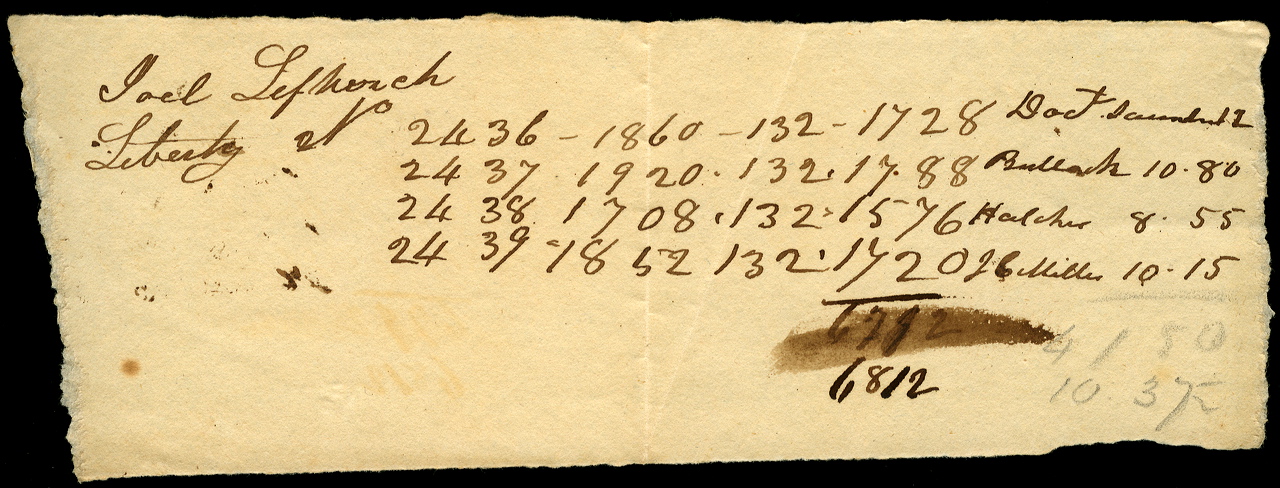 Joel Leftwich
Liberty No 2436 - 1860 - 132 - 1728 Doct Saunders 12
2437 1920 . 132 . 1788 Bullock 10.80
2438 1708 . 132 . 1576 Hatcher 8.55
2439 - 1852 132 . 1720 Miller 10.15
6792
6812
41 50
10.37½